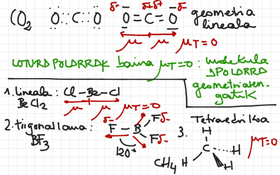 CO₂ O::C::O δ- δ+δ+ δ- O=C=O geometria lineala
μ μ μT=0
LOTURA POLARRAK baina μT=0: molekula APOLARRA geometriagatik
1. lineala: Cl-Be-Cl
BeCl₂ μ μ μT=0
2. trigonal laua: F-B F F δ- δ- δ-
BF₃ 120°
3. Tetraedrikoa
CH₄ H C H H H μT=0